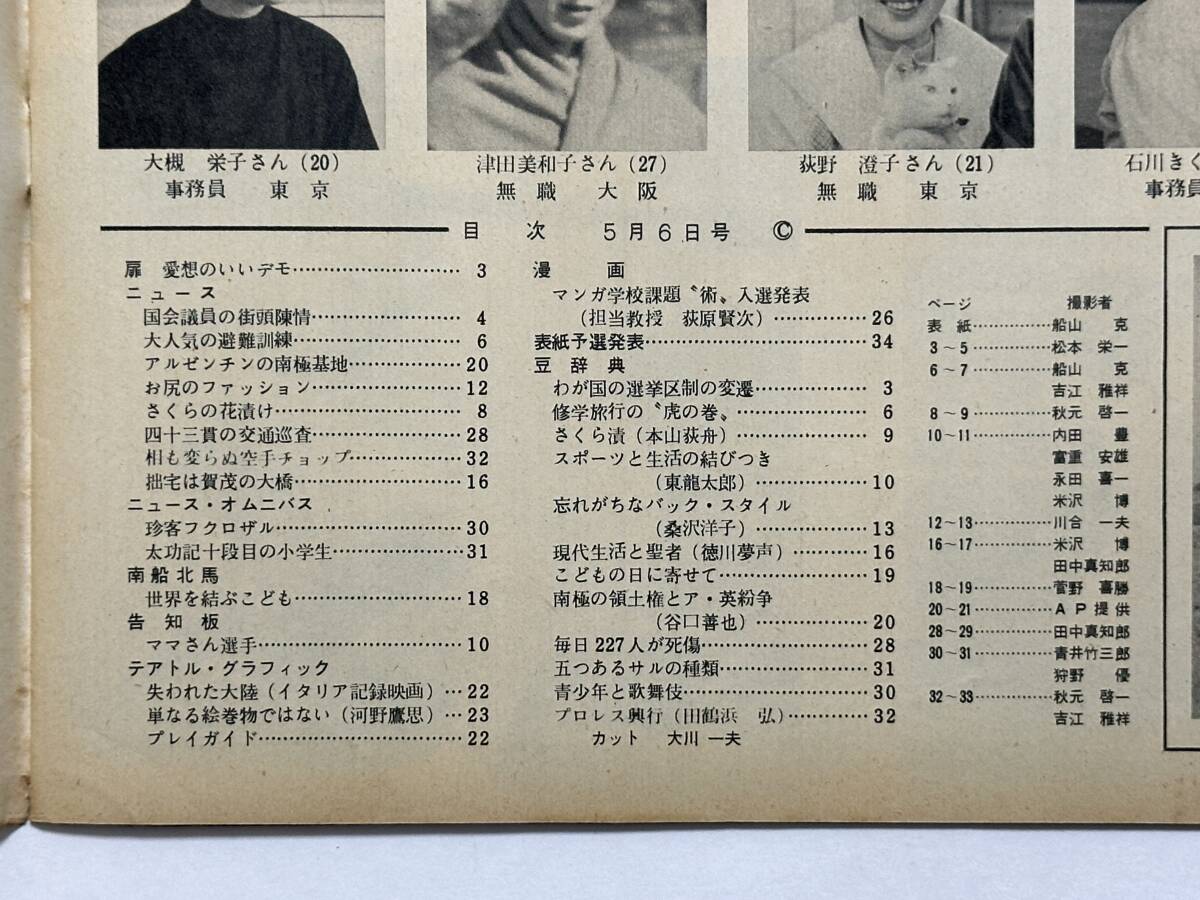 大槻 栄子さん(20)
事務員 東京
津田美和子さん(27)
無職 大阪
荻野 澄子さん(21)
無職 東京
石川きく
事務員
目次 5月6日号 ©
扉 愛想のいいデモ…………………… 3
ニュース
国会議員の街頭陳情………………… 4
大人気の避難訓練…………………… 6
アルゼンチンの南極基地……………20
お尻のファッション…………………12
さくらの花漬け……………………… 8
四十三貫の交通巡査…………………28
相も変らぬ空手チョップ……………32
拙宅は賀茂の大橋……………………16
ニュース・オムニバス
珍客フクロザル………………………30
太功記十段目の小学生………………31
南船北馬
世界を結ぶこども……………………18
告知板
ママさん選手…………………………10
テアトル・グラフィック
失われた大陸(イタリア記録映画)…22
単なる絵巻物ではない(河野鷹思)…23
プレイガイド…………………………22
漫画
マンガ学校課題〝術〟入選発表
(担当教授 荻原賢次)……………26
表紙予選発表…………………………34
豆辞典
わが国の選挙区制の変遷…………… 3
修学旅行の〝虎の巻〟……………… 6
さくら漬(本山荻舟)……………… 9
スポーツと生活の結びつき
(東龍太郎)………………10
忘れがちなバック・スタイル
(桑沢洋子)………………13
現代生活と聖者(徳川夢声)………16
こどもの日に寄せて…………………19
南極の領土権とア・英紛争
(谷口善也)………………20
毎日227人が死傷……………………28
五つあるサルの種類…………………31
青少年と歌舞伎………………………30
プロレス興行(田鶴浜 弘)…………32
カット 大川一夫
ページ 撮影者
表紙……………船山 克
3～5……………松本 栄一
6～7……………船山 克
吉江 雅祥
8～9……………秋元 啓一
10～11……………内田 豊
富重 安雄
永田 喜一
米沢 博
12～13……………川合 一夫
16～17……………米沢 博
田中真知郎
18～19……………菅野 喜勝
20～21……………AP提供
28～29……………田中真知郎
30～31……………青井竹三郎
狩野 優
32～33……………秋元 啓一
吉江 雅祥